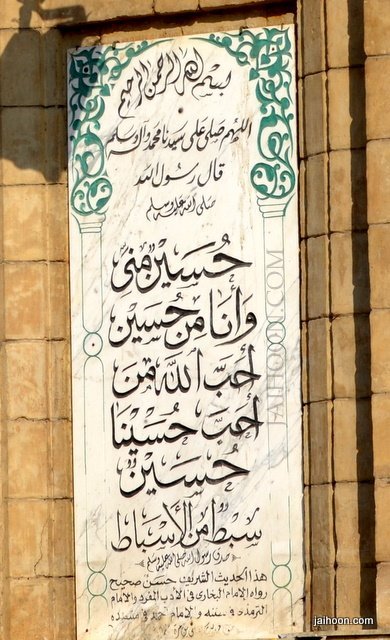 بسم الله الرحمن الرحيم
اللهم صلى على سيدنا محمد وآل وسلم
قال رسول الله
صلى الله عليه وسلم
حُسَيْنٌ مِنِّى
وَأَنَا مِنْ حُسَيْنٍ
أَحَبَّ اللَّهَ مَنْ
أَحَبَّ حُسَيْنًا
حُسَيْنٌ
سِبْطٌ مِنَ الأَسْبَاطِ
صدق رسول الله صلى الله عليه وسلم
هذا الحديث الشريف حسن صحيح
رواه الإمام البخارى فى الأدب المفرد والإمام
الترمذى فى سننه والإمام أحمد فى مسنده
JAIHOON.COM
jaihoon.com